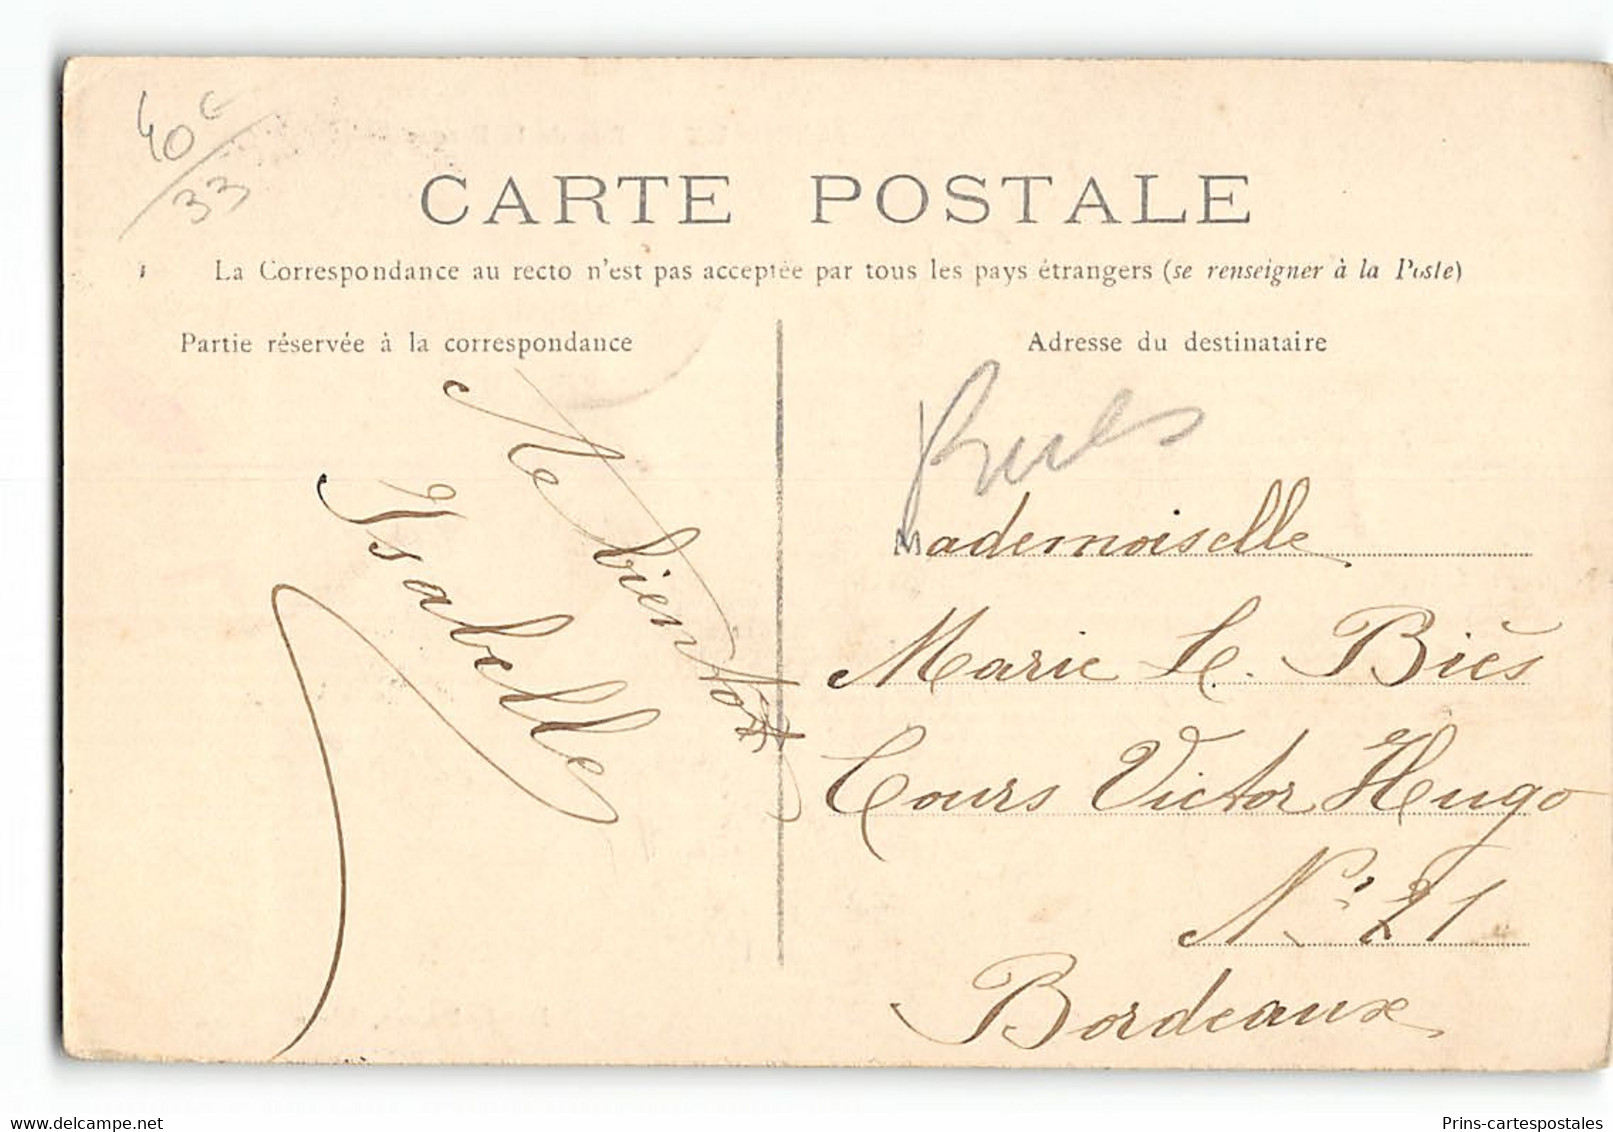 40€
33
CARTE POSTALE
La Correspondance au recto n'est pas acceptée par tous les pays étrangers (se renseigner à la Poste)
Partie réservée à la correspondance
Adresse du destinataire
A bientôt
Isabelle
Mademoiselle
Marie L. Biès
Cours Victor Hugo
N° 21
Bordeaux
www.delcampe.net
Prins-cartespostales